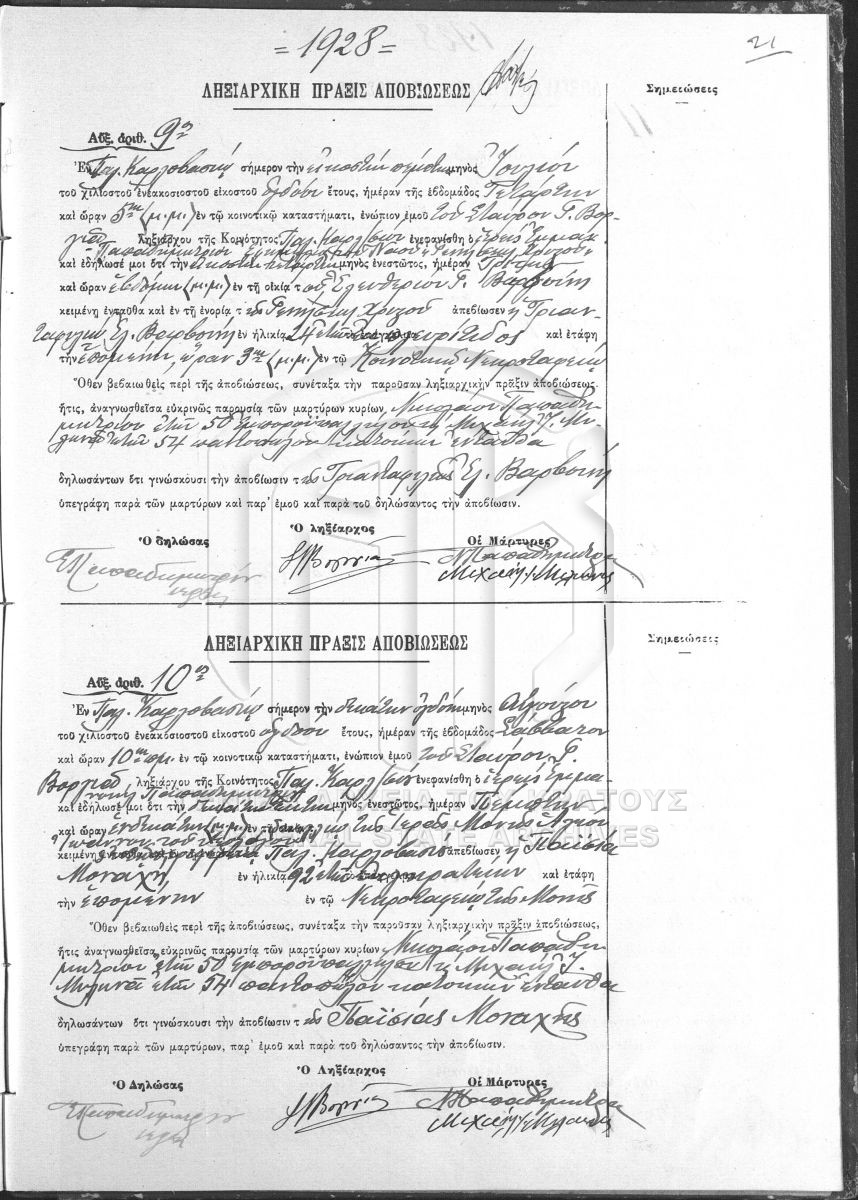 =1928=
21
ΛΗΞΙΑΡΧΙΚΗ ΠΡΑΞΙΣ ΑΠΟΒΙΩΣΕΩΣ
Σημειώσεις
Αὔξ. ἀριθ. 9η
Ἐν Παλ. Καρλοβασίῳ σήμερον τὴν εἰκοστὴν πέμπτην μηνὸς Ἰουλίου
τοῦ χιλιοστοῦ ἐνεακοσιοστοῦ εἰκοστοῦ ὀγδόου ἔτους, ἡμέραν τῆς ἑβδομάδος Τετάρτην
καὶ ὥραν 5ην (μ.μ.) ἐν τῷ κοινοτικῷ καταστήματι, ἐνώπιον ἐμοῦ τοῦ Σταύρου Γ.
ληξιάρχου τῆς Κοινότητος Παλ. ἐνεφανίσθη ὁ ἱερεὺς Ἐμμαν.
Παπαδημητρίου
καὶ ἐδήλωσέ μοι ὅτι τὴν εἰκοστὴν τετάρτην μηνὸς ἐνεστῶτος, ἡμέραν Τρίτην
καὶ ὥραν ἑβδόμην (μ.μ.) ἐν τῇ οἰκίᾳ τοῦ Ἐλευθερίου Γ. Βαρβούνη
κειμένῃ ἐνταῦθα καὶ ἐν τῇ ἐνορίᾳ τῆς Γεννήσεως Χριστοῦ ἀπεβίωσεν ἡ Τριαν-
ταφυλιὰ Ἐλ. Βαρβούνη ἐν ἡλικίᾳ 24 ἐτῶν ἐκ πλευρίτιδος καὶ ἐτάφη
τὴν ἑπομένην, ὥραν 3ην (μ.μ.) ἐν τῷ Κοινοτικῷ Νεκροταφείῳ
Ὅθεν βεβαιωθεὶς περὶ τῆς ἀποβιώσεως, συνέταξα τὴν παροῦσαν ληξιαρχικὴν πρᾶξιν ἀποβιώσεως.
ἥτις, ἀναγνωσθεῖσα εὐκρινῶς παρουσίᾳ τῶν μαρτύρων κυρίων Νικολάου Παπαδη-
μητρίου ἐτῶν 50 ἐμποροϋπαλλήλου καὶ Μιχαὴλ Ἰ.
ἐτῶν 54 παντοπώλου κατοίκων ἐνταῦθα
δηλωσάντων ὅτι γινώσκουσι τὴν ἀποβίωσιν τῆς Τριανταφυλιᾶς Ἐλ. Βαρβούνη
ὑπεγράφη παρὰ τῶν μαρτύρων καὶ παρ' ἐμοῦ καὶ παρὰ τοῦ δηλώσαντος τὴν ἀποβίωσιν.
Ὁ δηλώσας Ὁ ληξίαρχος Οἱ Μάρτυρες
ΕΠαπαδημητρίου
ἱερεύς
ΝΠαπαδημητρίου
ΛΗΞΙΑΡΧΙΚΗ ΠΡΑΞΙΣ ΑΠΟΒΙΩΣΕΩΣ
Σημειώσεις
Αὔξ. ἀριθ. 10η
Ἐν Παλ. Καρλοβασίῳ σήμερον τὴν δεκάτην ὀγδόην μηνὸς Αὐγούστου
τοῦ χιλιοστοῦ ἐνεακοσιοστοῦ εἰκοστοῦ ὀγδόου ἔτους, ἡμέραν τῆς ἑβδομάδος Σάββατον
καὶ ὥραν 10ην πμ. ἐν τῷ κοινοτικῷ καταστήματι, ἐνώπιον ἐμοῦ τοῦ Σταύρου Γ.
ληξιάρχου τῆς Κοινότητος Παλ. ἐνεφανίσθη ὁ ἱερεὺς Ἐμμα-
νουὴλ Παπαδημητρίου
καὶ ἐδήλωσέ μοι ὅτι τὴν δεκάτην ἕκτην μηνὸς ἐνεστῶτος, ἡμέραν Πέμπτην
καὶ ὥραν ἑνδεκάτην (μ.μ.) ἐν τῆς Ἱερᾶς Μονῆς Ἁγίου
Ἰωάννου τοῦ
κειμένῃ Παλ. Καρλοβασίου ἀπεβίωσεν ἡ Παϊσία
Μοναχὴ ἐν ἡλικίᾳ 92 ἐτῶν ἐκ γηρατειῶν καὶ ἐτάφη
τὴν ἑπομένην ἐν τῷ Νεκροταφείῳ τῆς Μονῆς
Ὅθεν βεβαιωθεὶς περὶ τῆς ἀποβιώσεως, συνέταξα τὴν παροῦσαν ληξιαρχικὴν πρᾶξιν ἀποβιώσεως,
ἥτις ἀναγνωσθεῖσα εὐκρινῶς παρουσίᾳ τῶν μαρτύρων κυρίων Νικολάου Παπαδη-
μητρίου ἐτῶν 50 ἐμποροϋπαλλήλου καὶ Μιχαὴλ Ἰ.
ἐτῶν 54 παντοπώλου κατοίκων ἐνταῦθα
δηλωσάντων ὅτι γινώσκουσι τὴν ἀποβίωσιν τῆς Παϊσίας Μοναχῆς
ὑπεγράφη παρὰ τῶν μαρτύρων, παρ' ἐμοῦ καὶ παρὰ τοῦ δηλώσαντος τὴν ἀποβίωσιν.
Ὁ Δηλώσας Ὁ Ληξίαρχος Οἱ Μάρτυρες
ΕΠαπαδημητρίου
ἱερεύς
ΝΠαπαδημητρίου